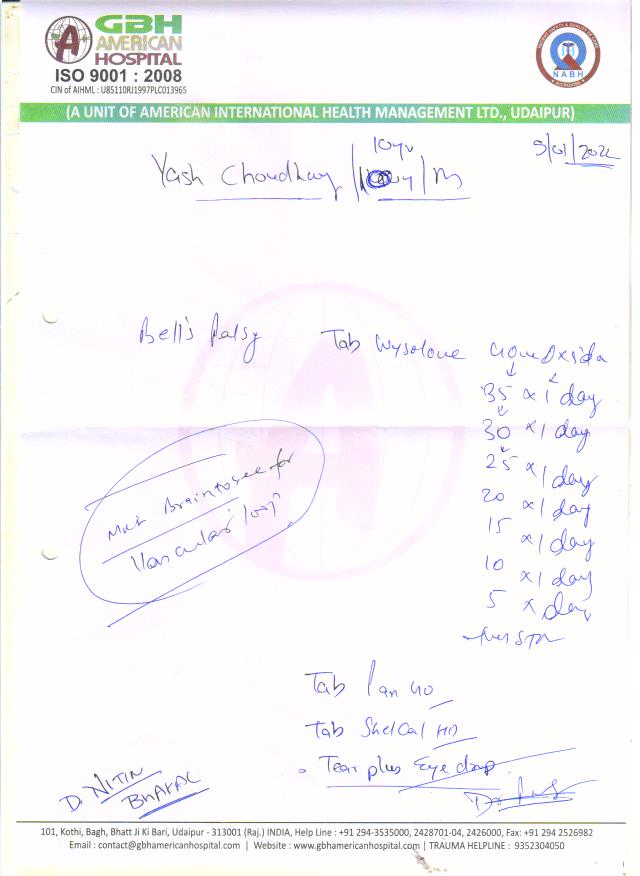 GBH
AMERICAN
HOSPITAL
ISO 9001 : 2008
CIN of AIHML : U85110RJ1997PLC013965
NABH
(A UNIT OF AMERICAN INTERNATIONAL HEALTH MANAGEMENT LTD., UDAIPUR)
10yr
5/01/2022
Yash Choudhary / /M
Bell's Palsy Tab Wysolone 40mg x 5 da
35 x 1 day
30 x 1 day
25 x 1 day
20 x 1 day
15 x 1 day
10 x 1 day
5 x day
MRI Brain to see for
Vascular loop
Tab Pan 40
Tab Shelcal HD
Tear plus Eye drop
Dr NITIN
101, Kothi, Bagh, Bhatt Ji Ki Bari, Udaipur - 313001 (Raj.) INDIA, Help Line : +91 294-3535000, 2428701-04, 2426000, Fax: +91 294 2526982
Email : contact@gbhamericanhospital.com | Website : www.gbhamericanhospital.com | TRAUMA HELPLINE : 9352304050